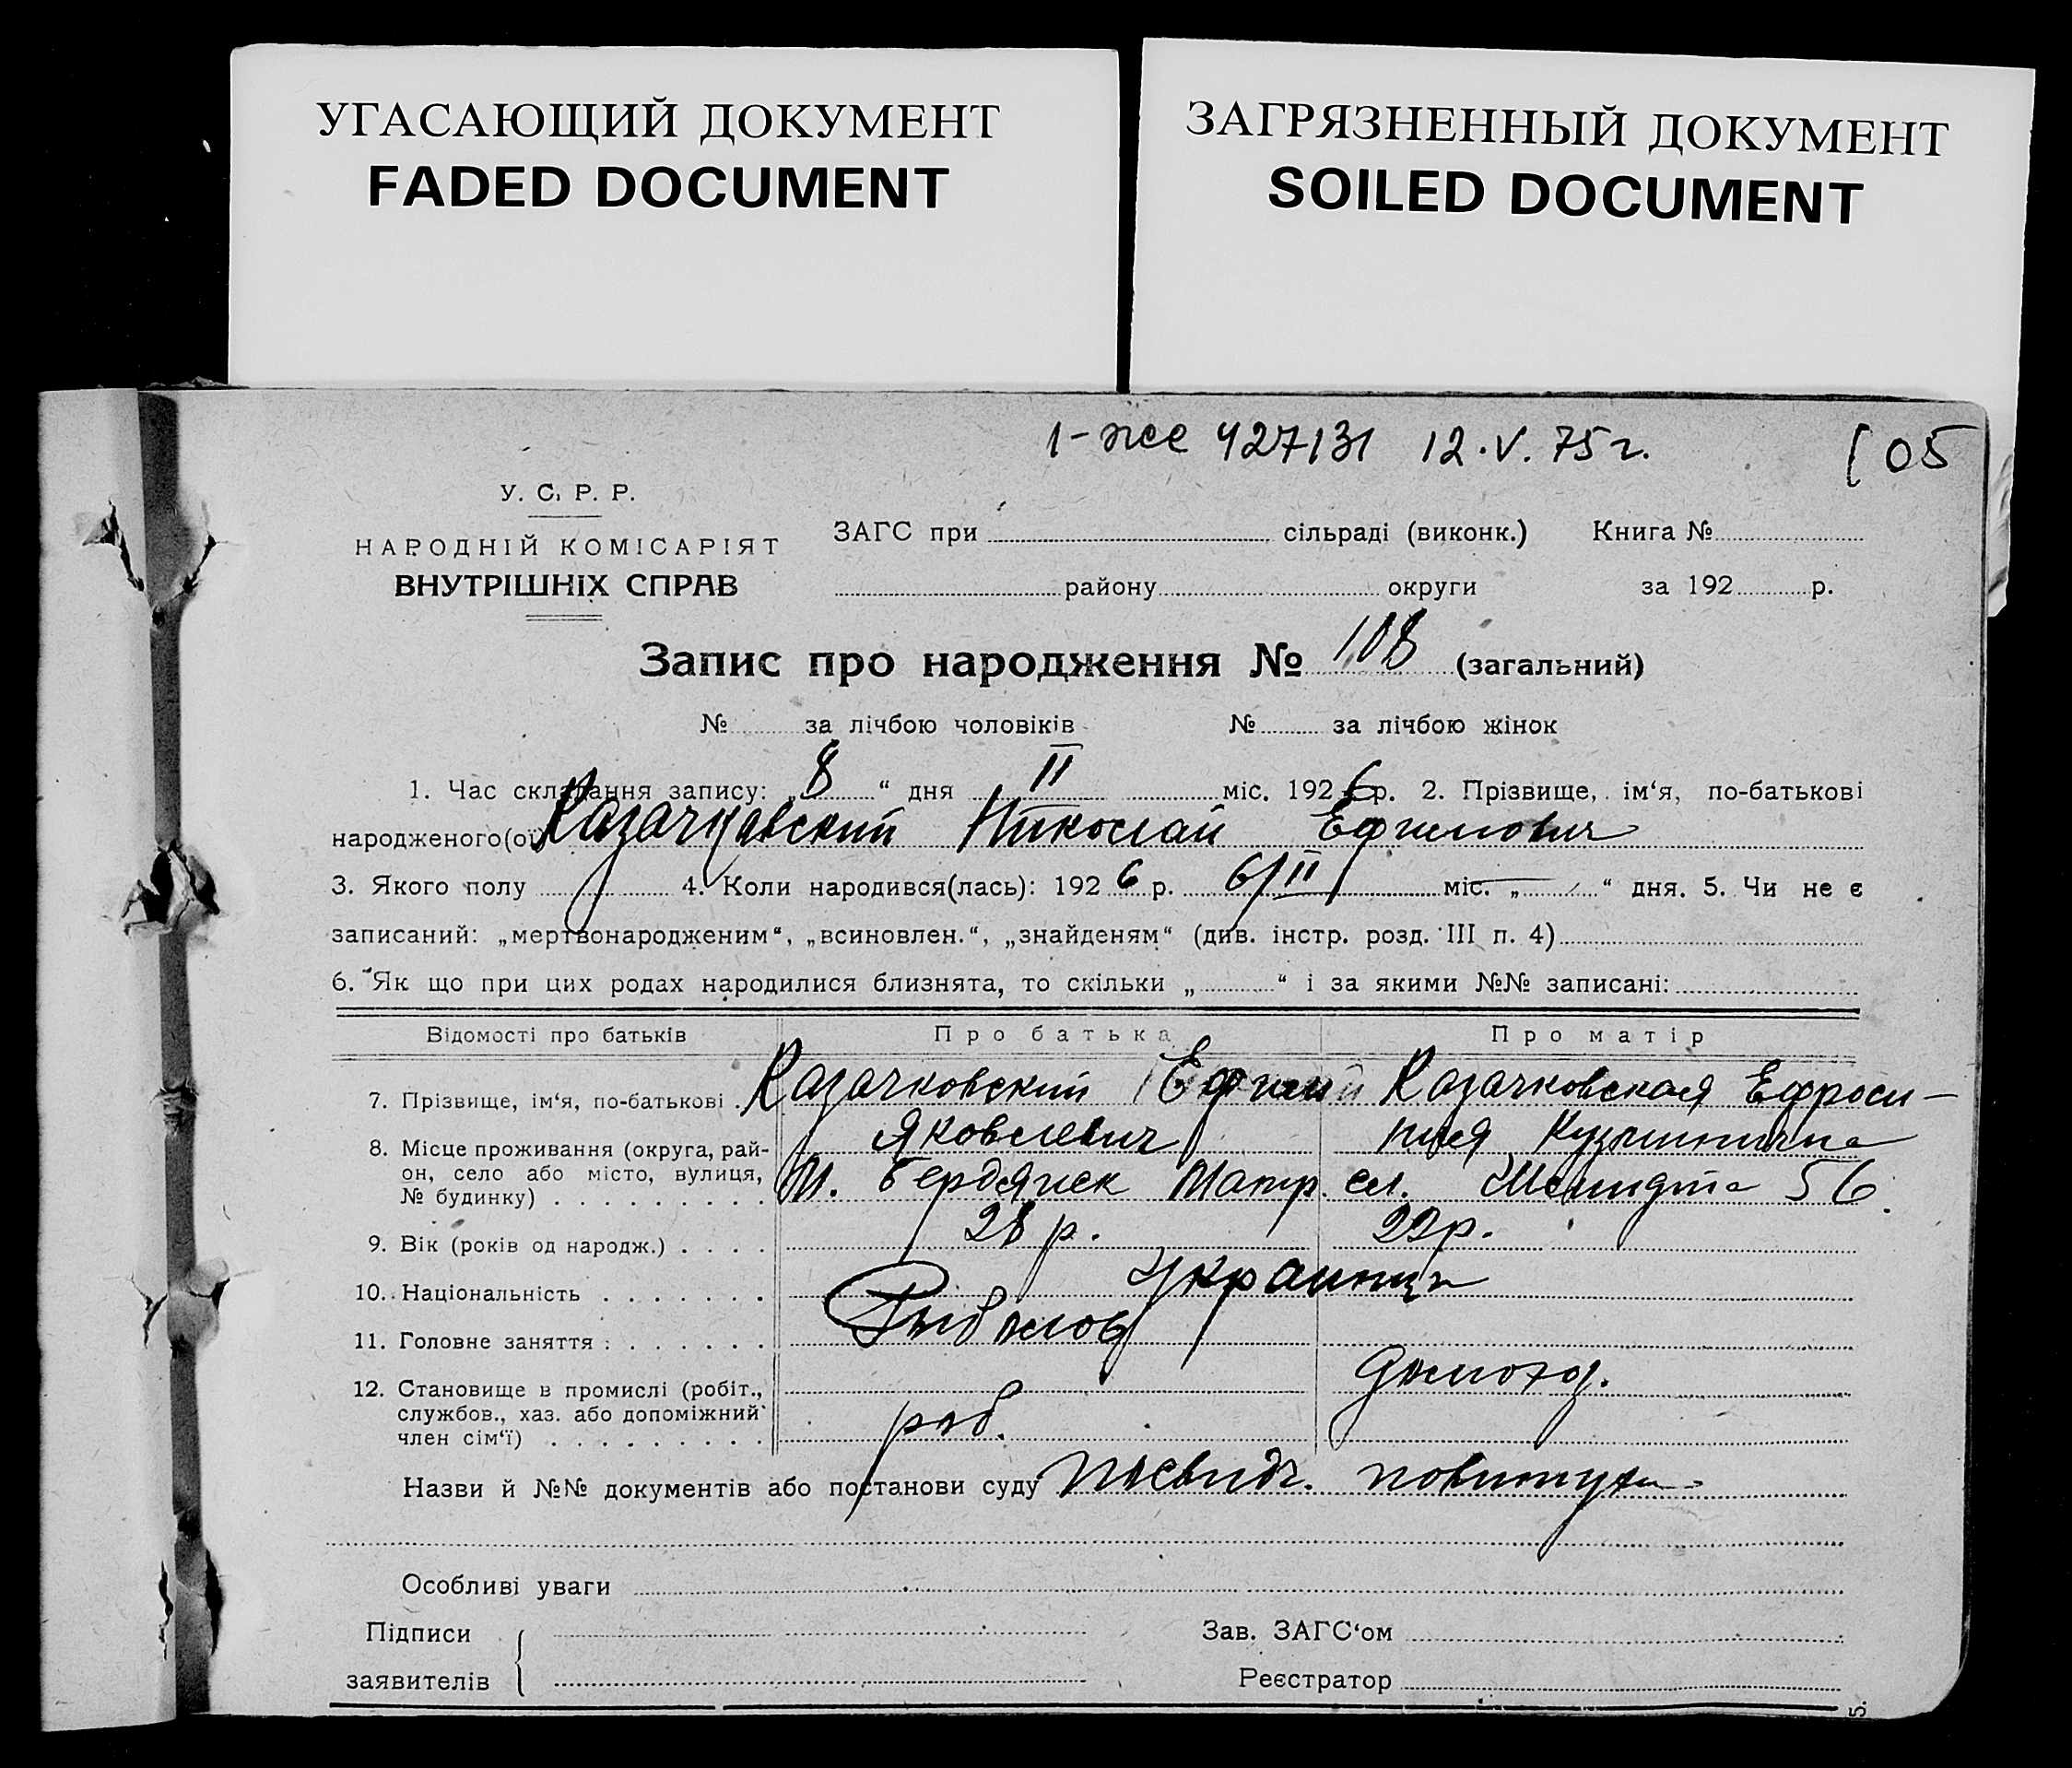 УГАСАЮЩИЙ ДОКУМЕНТ
FADED DOCUMENT
ЗАГРЯЗНЕННЫЙ ДОКУМЕНТ
SOILED DOCUMENT
427131 12.V.75 г.
105
У. С. Р. Р.
НАРОДНІЙ КОМІСАРІЯТ
ВНУТРІШНІХ СПРАВ
ЗАГС при сільраді (виконк.) Книга №
району округи за 192 р.
Запис про народження № 108 (загальний)
№ за лічбою чоловіків № за лічбою жінок
1. Час складання запису: „ 8 “ дня II міс. 1926 р. 2. Прізвище, ім‘я, по-батькові
народженого(ої) Казачковский Николай Ефимович
3. Якого полу 4. Коли народився(лась): 1926 р. 6/II міс. „ “ дня. 5. Чи не є
записаний: „мертвонародженим“, „всиновлен.“, „знайденям“ (див. інстр. розд. III п. 4)
6. Як що при цих родах народилися близнята, то скільки „ “ і за якими №№ записані:
Відомості про батьків Про батька Про матір
7. Прізвище, ім‘я, по-батькові Казачковский Ефим Казачковская Ефроси-
Яковлевич ния Кузьминична
8. Місце проживання (округа, рай-
он, село або місто, вулиця,
№ будинку) М. Бердянск сл. Шмидта 56
9. Вік (років од народж.) 28 р. 22 р.
10. Національність украинцы
11. Головне заняття : Рыболов
домохоз.
12. Становище в промислі (робіт.,
службов., хаз. або допоміжний
член сім‘ї) раб.
Назви й №№ документів або постанови суду посвидч. повитухи
Особливі уваги
Підписи
заявителів
Зав. ЗАГС‘ом
Реєстратор
5.